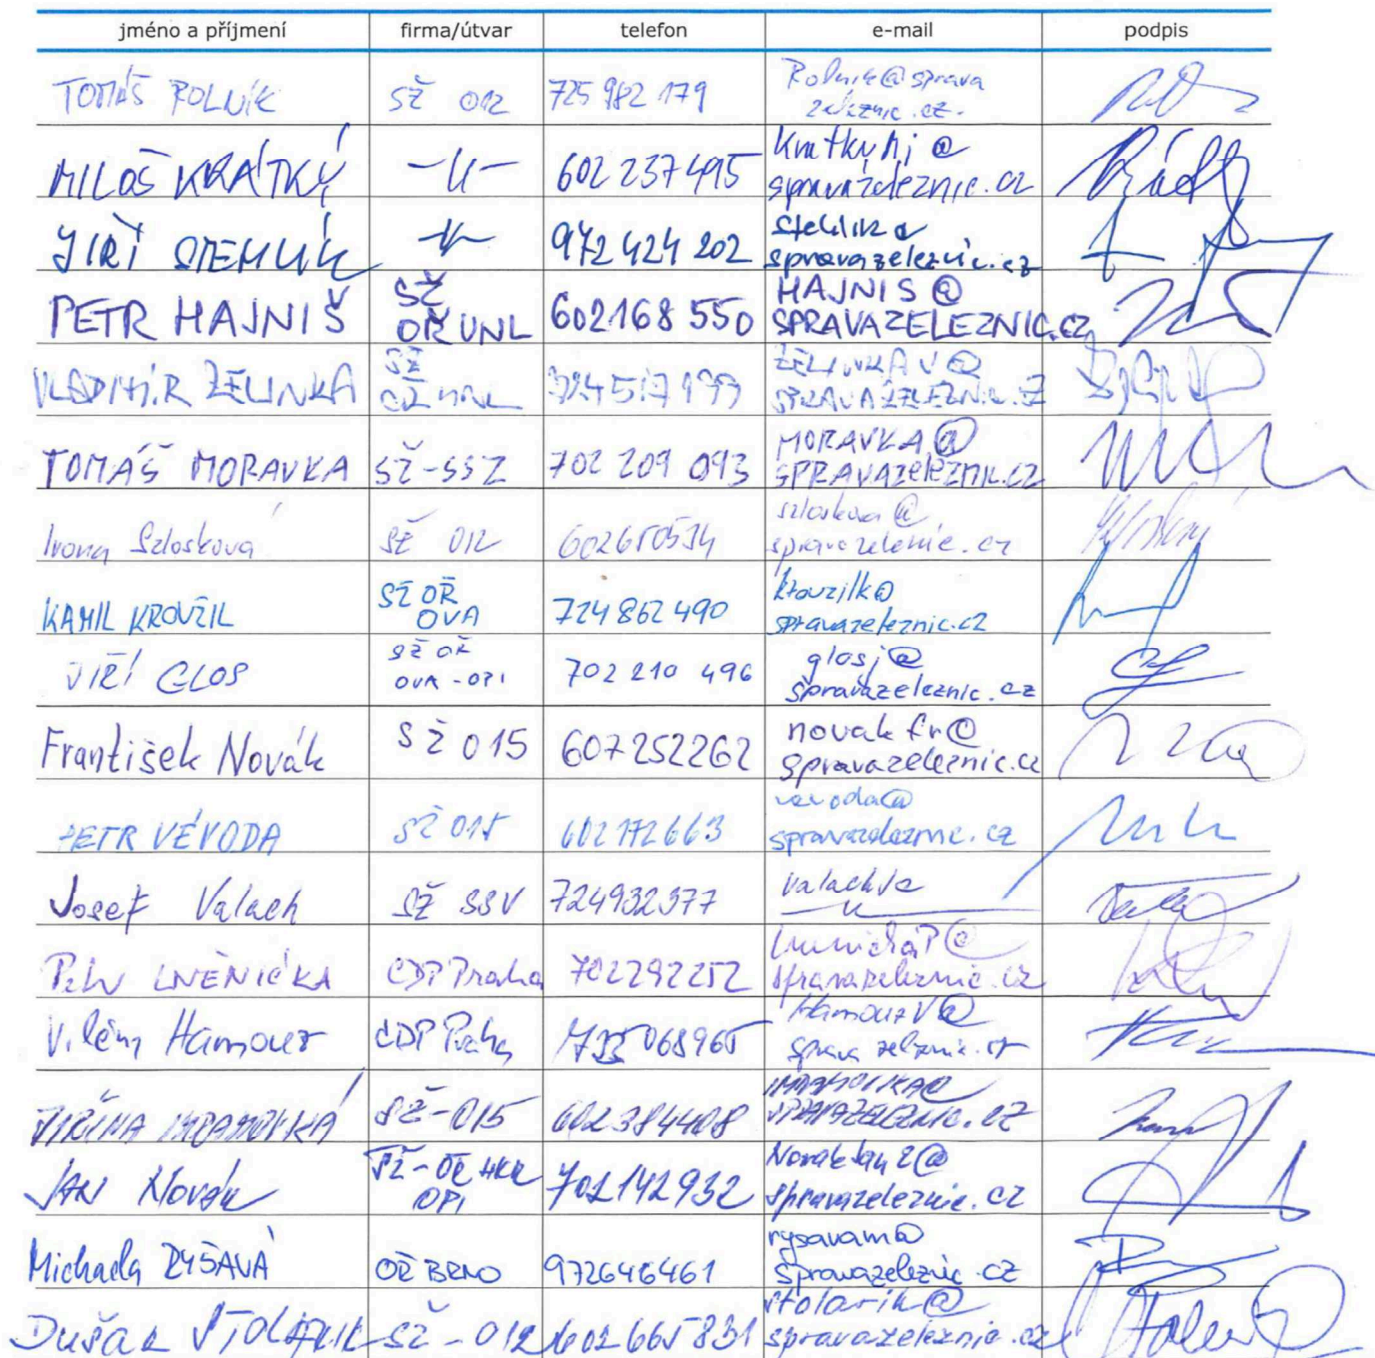 jméno a příjmení firma/útvar telefon e-mail podpis
TOMÁŠ ROLNÍK SŽ O12 725 982 179 Rolnik@sprava
zeleznic.cz.
MILOŠ KRÁTKÝ -||- 602 237 495 KratkyMi@
spravazeleznic.cz
JIŘÍ STEHLÍK -||- 972 424 202 Stehlik@
spravazeleznic.cz
PETR HAJNIŠ SŽ OŘ UNL 602168 550 HAJNIS@
SPRAVAZELEZNIC.CZ
VLADIMÍR ŽELINKA SŽ OŘ UNL ZELINKAV@
SPRAVAZELEZNIC.CZ
TOMÁŠ MORAVKA SŽ-SSZ 702 209 093 MORAVKA@
SPRAVAZELEZNIC.CZ
Ivona Szlosková SŽ O12 602650534 szloskova@
spravazeleznic.cz
KAMIL KROUŽIL SŽ OŘ OVA 724 862 490 krouzilk@
spravazeleznic.cz
JIŘÍ GLOS SŽ OŘ OVA-OP1 702 210 496 glosj@
spravazeleznic.cz
František Novák SŽ O15 607252262 novakfr@
spravazeleznic.cz
PETR VÉVODA SŽ O15 602 172 663 vevoda@
spravazeleznic.cz
Josef Valach SŽ SSV 724932377 ValachJ@
-||-
Petr LNĚNIČKA CDP Praha 702292252 LnenickaP@
spravazeleznic.cz
Vilém Hamouz CDP Praha HamouzV@
spravazeleznic.cz
JIŘINA SŽ-O15 602384408
SPRAVAZELEZNIC.CZ
JAN Novák SŽ-OŘ HKR OP1 702142932 NovakJan2@
spravazeleznic.cz
Michaela RYŠAVÁ OŘ BRNO 972646461 rysavam@
spravazeleznic.cz
Dušan STOLÁRIK SŽ-O12 602 665 831 stolarik@
spravazeleznic.cz